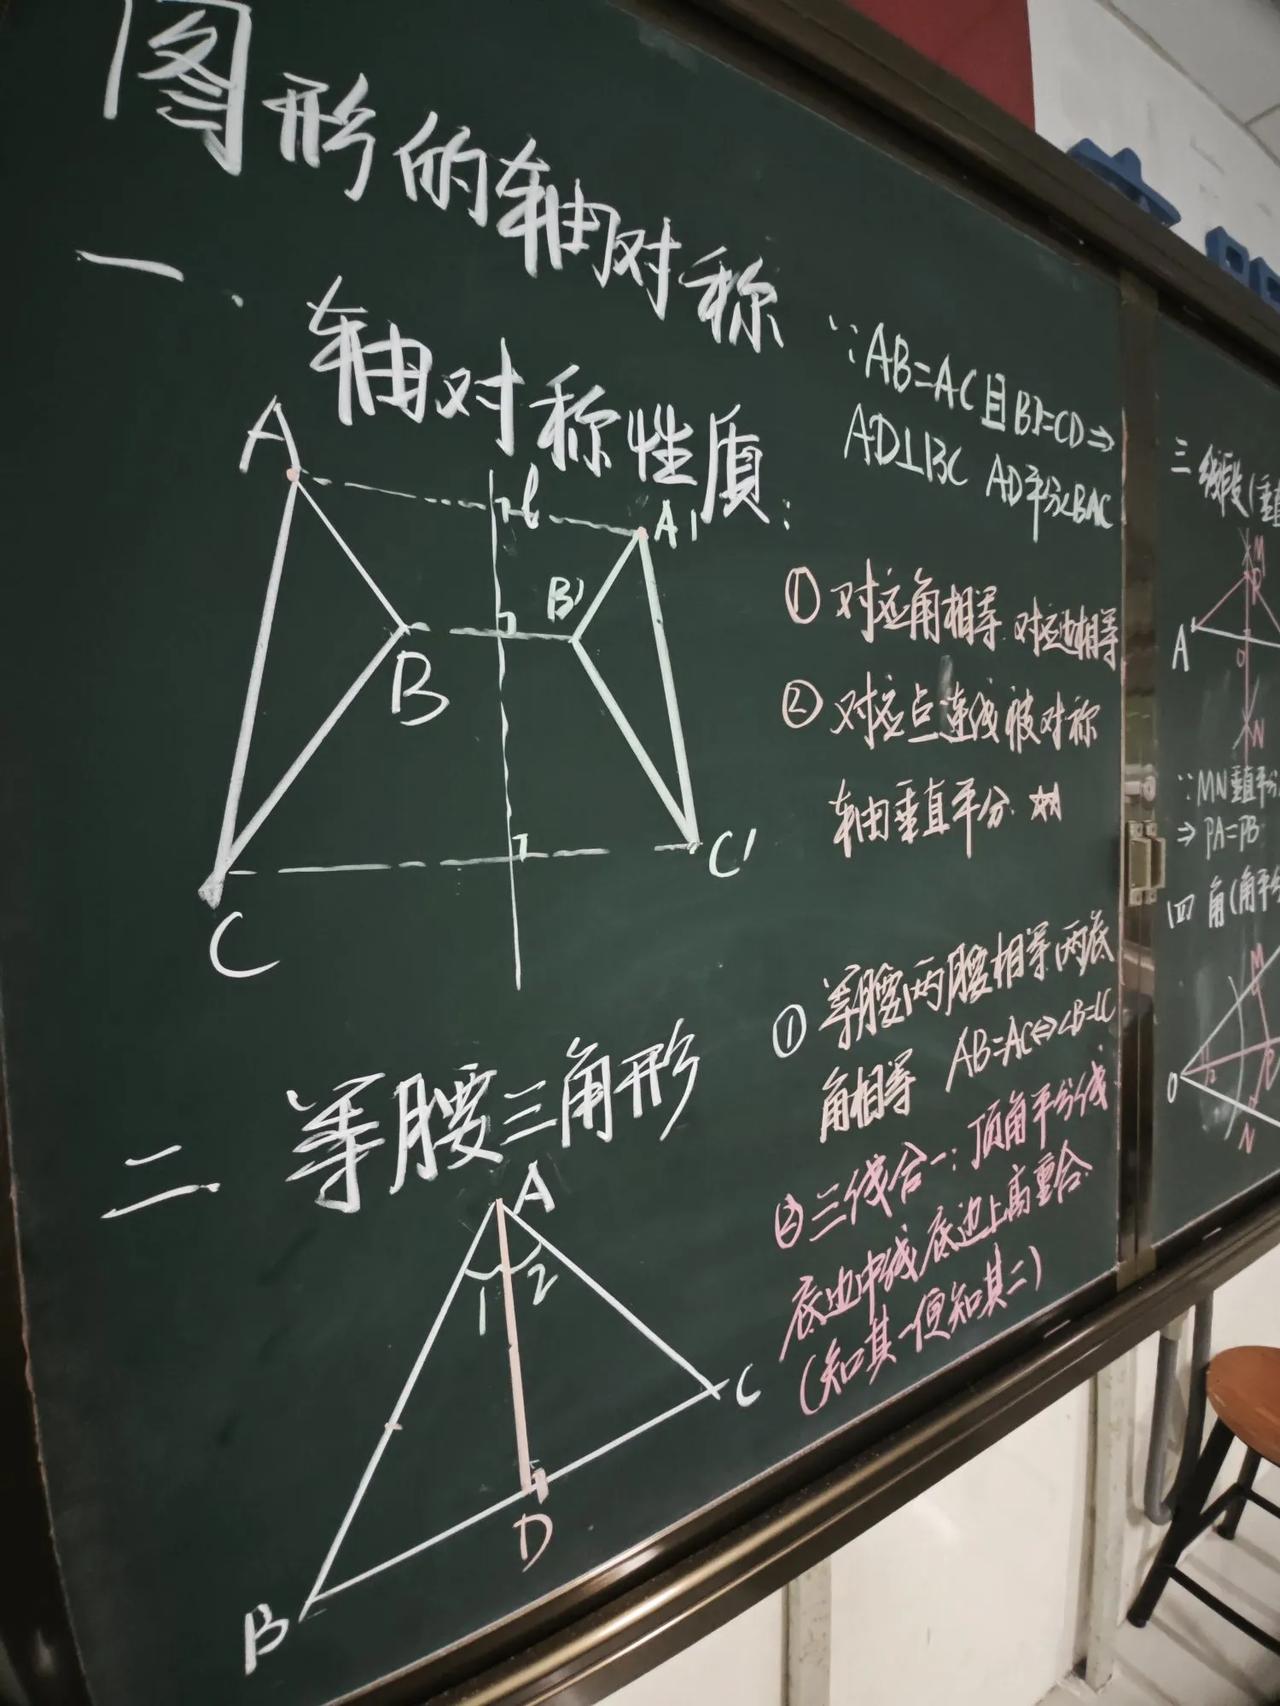 图形的轴对称
一、轴对称性质:
A
l
A'
B
B'
C
C'
∵AB=AC且BD=CD⇒
AD⊥BC AD平分∠BAC
① 对应角相等 对应边相等
② 对应点连线被对称
轴垂直平分
二 等腰三角形
A
1
2
B
C
D
① 等腰两腰相等,两底
角相等 AB=AC⇔∠B=∠C
② 三线合一:顶角平分线
底边中线 底边上高重合.
(知其一便知其二)
三 线段(垂直
M
P
A
O
N
∵MN垂直平分
⇒PA=PB
四 角(角平分
M
O
1
2
P
N